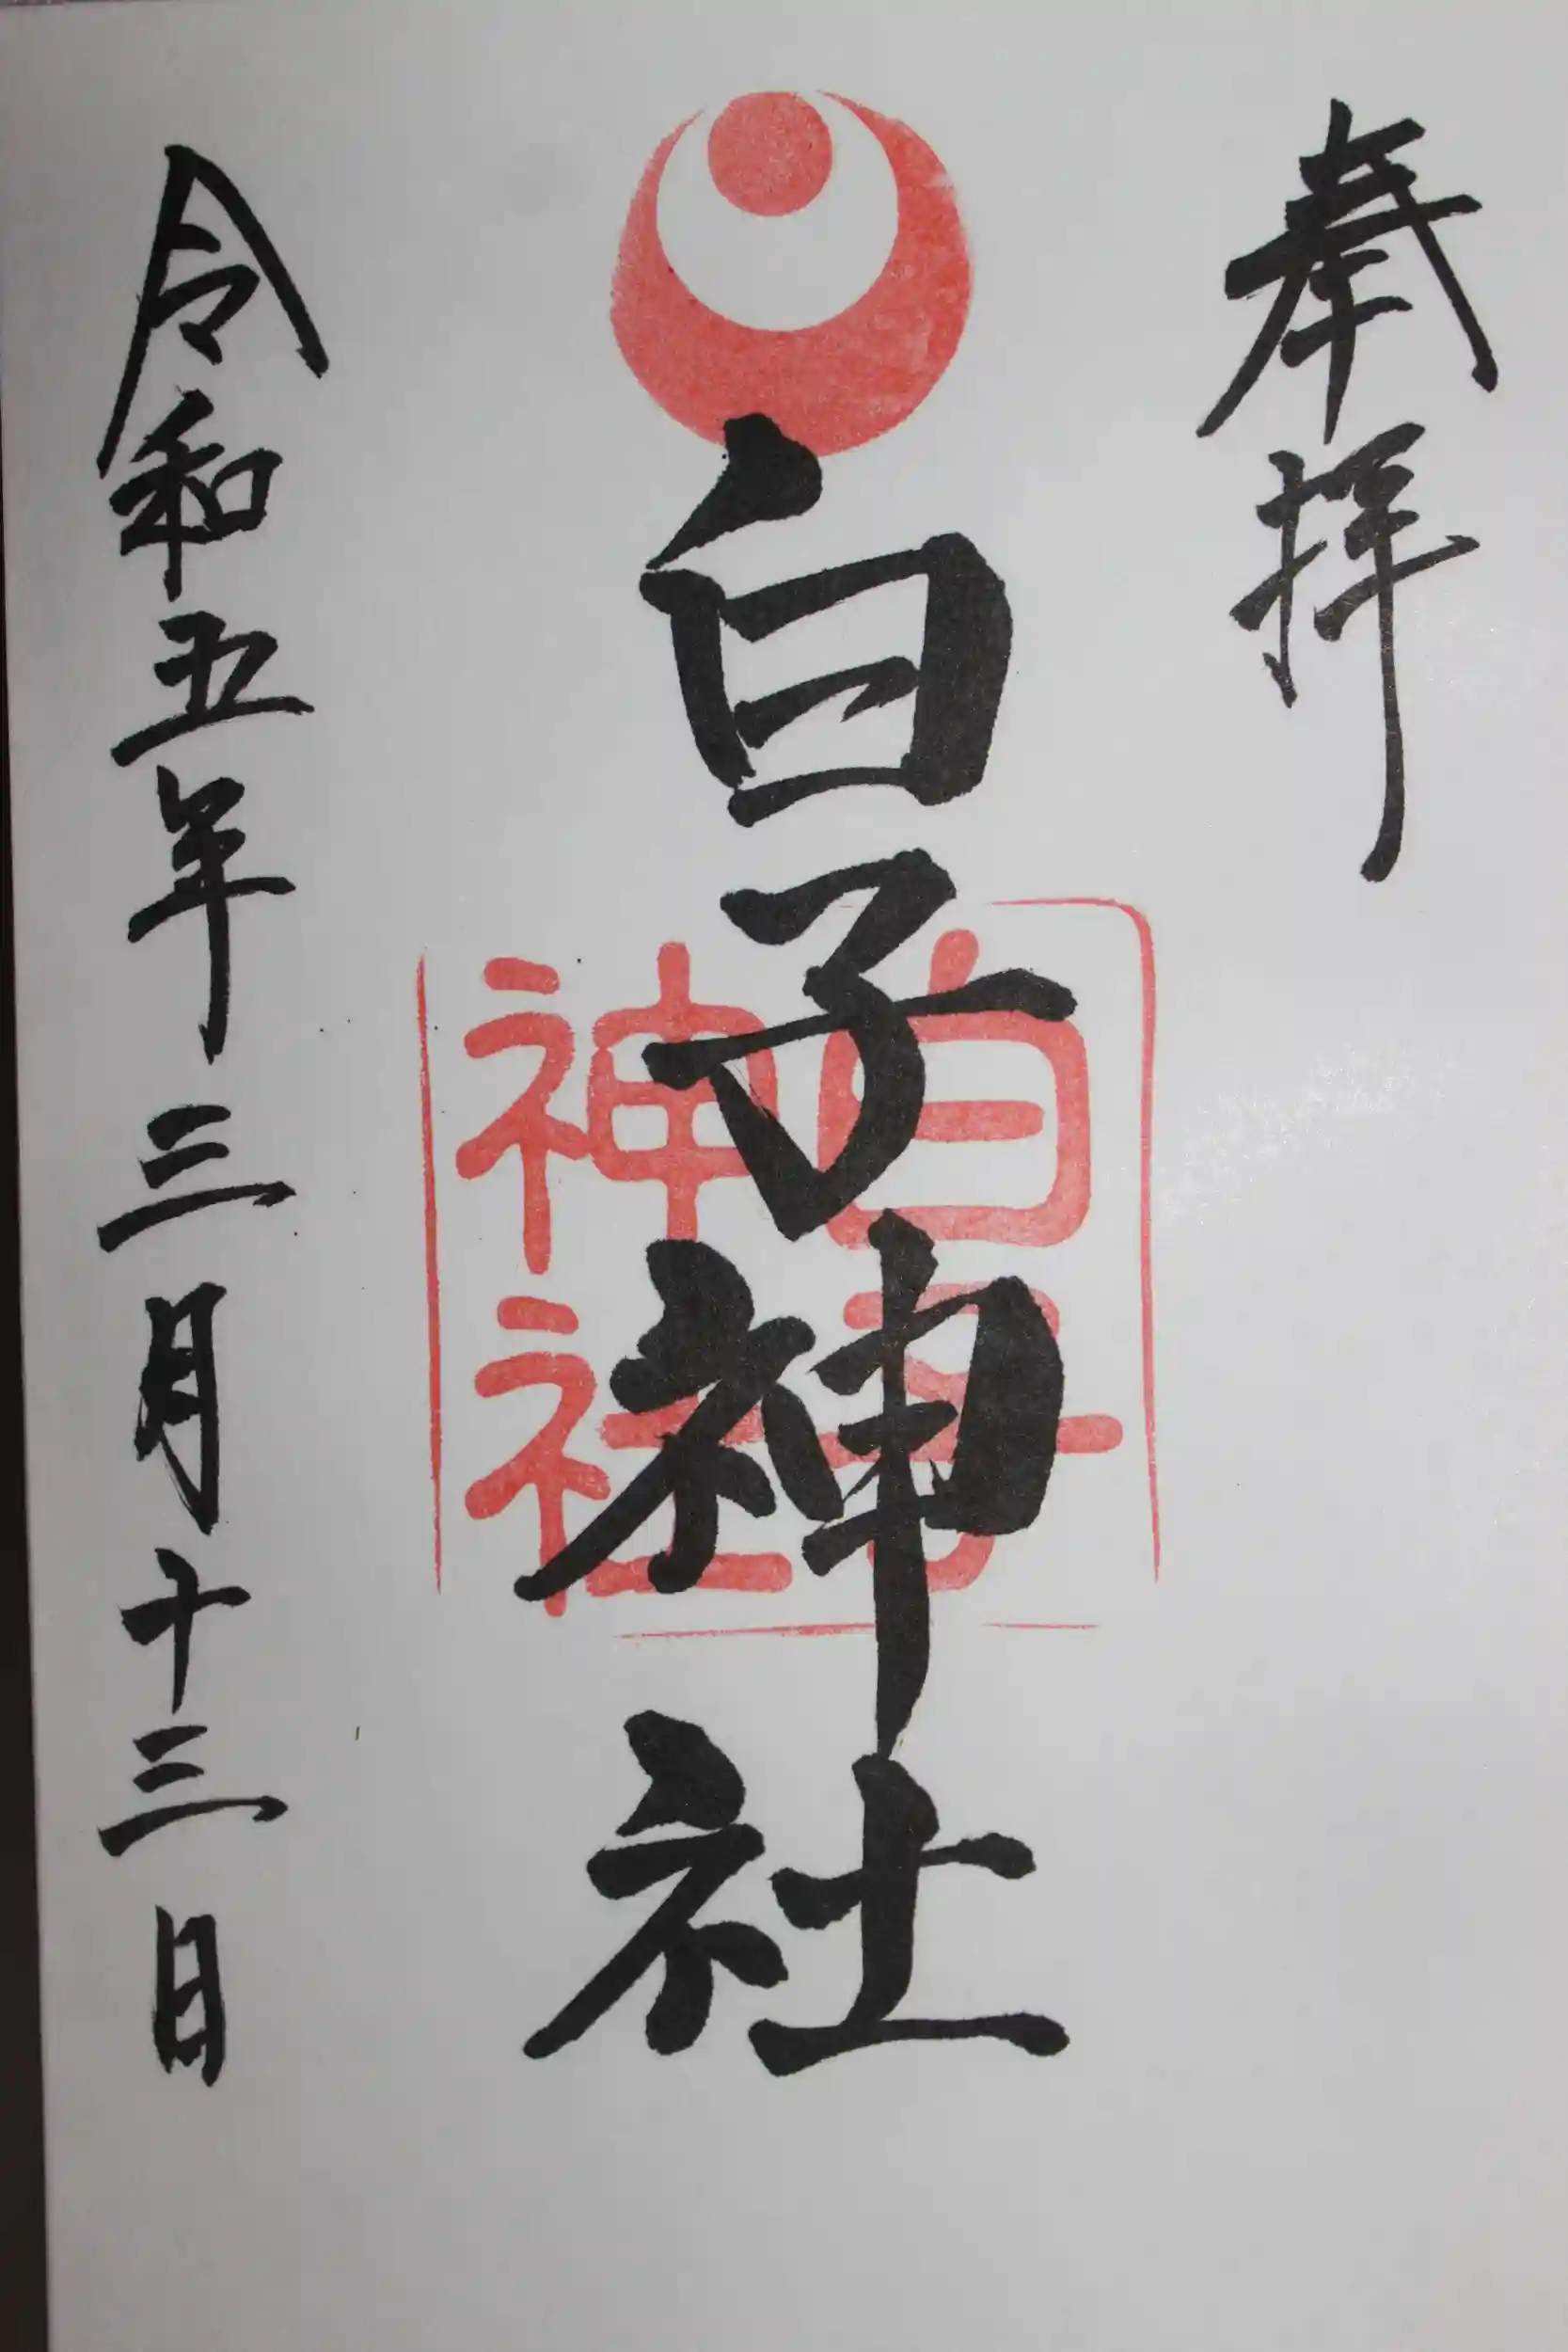 奉拝
白子神社
白子
神社
令和五年三月十三日